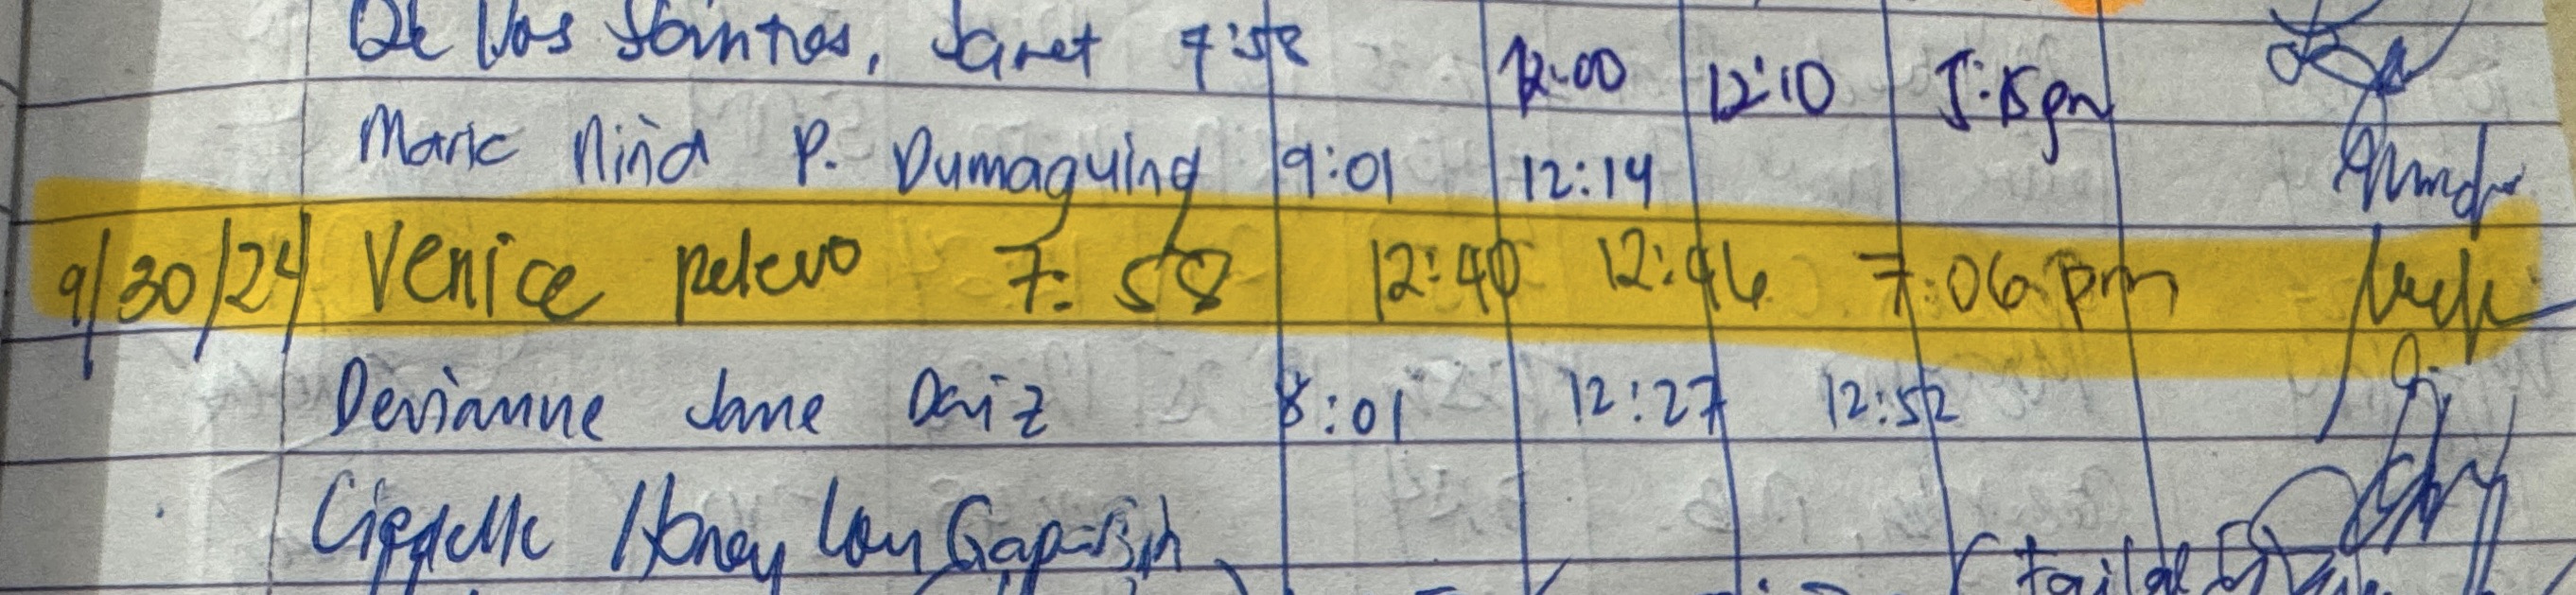 De Los Santos, Janet 7:58 12:00 12:10 5:15pm
Marie Niña P. Dumaguing 9:01 12:14
9/30/24 Venice pelevo 7:58 12:40 12:46 7:06 pm
Devianne Jane Daiz 8:01 12:27 12:52
Honey Lou